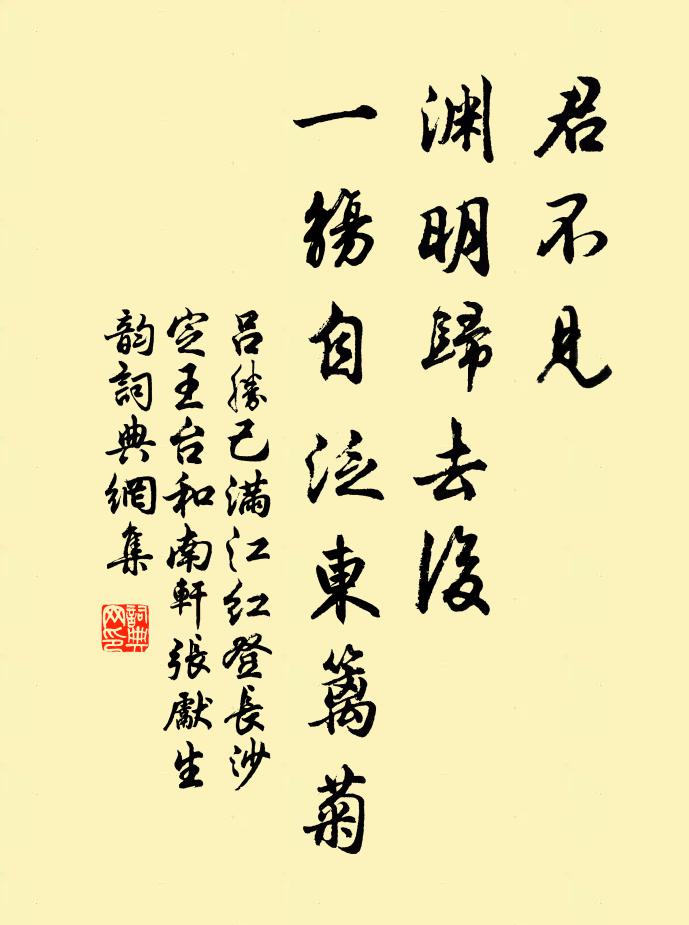 君不見
渊明歸去後
一觴自泛東篱菊
吕勝己滿江红登長沙
定王台和南軒張獻生
韵詞典網集
詞典
网印